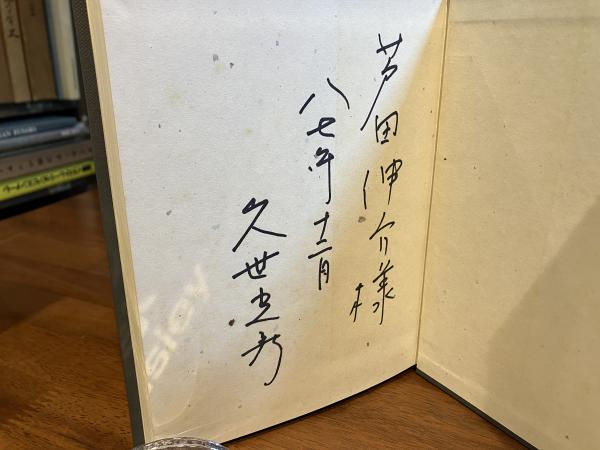 芦田伸介様
八七年十二月
久世光彦